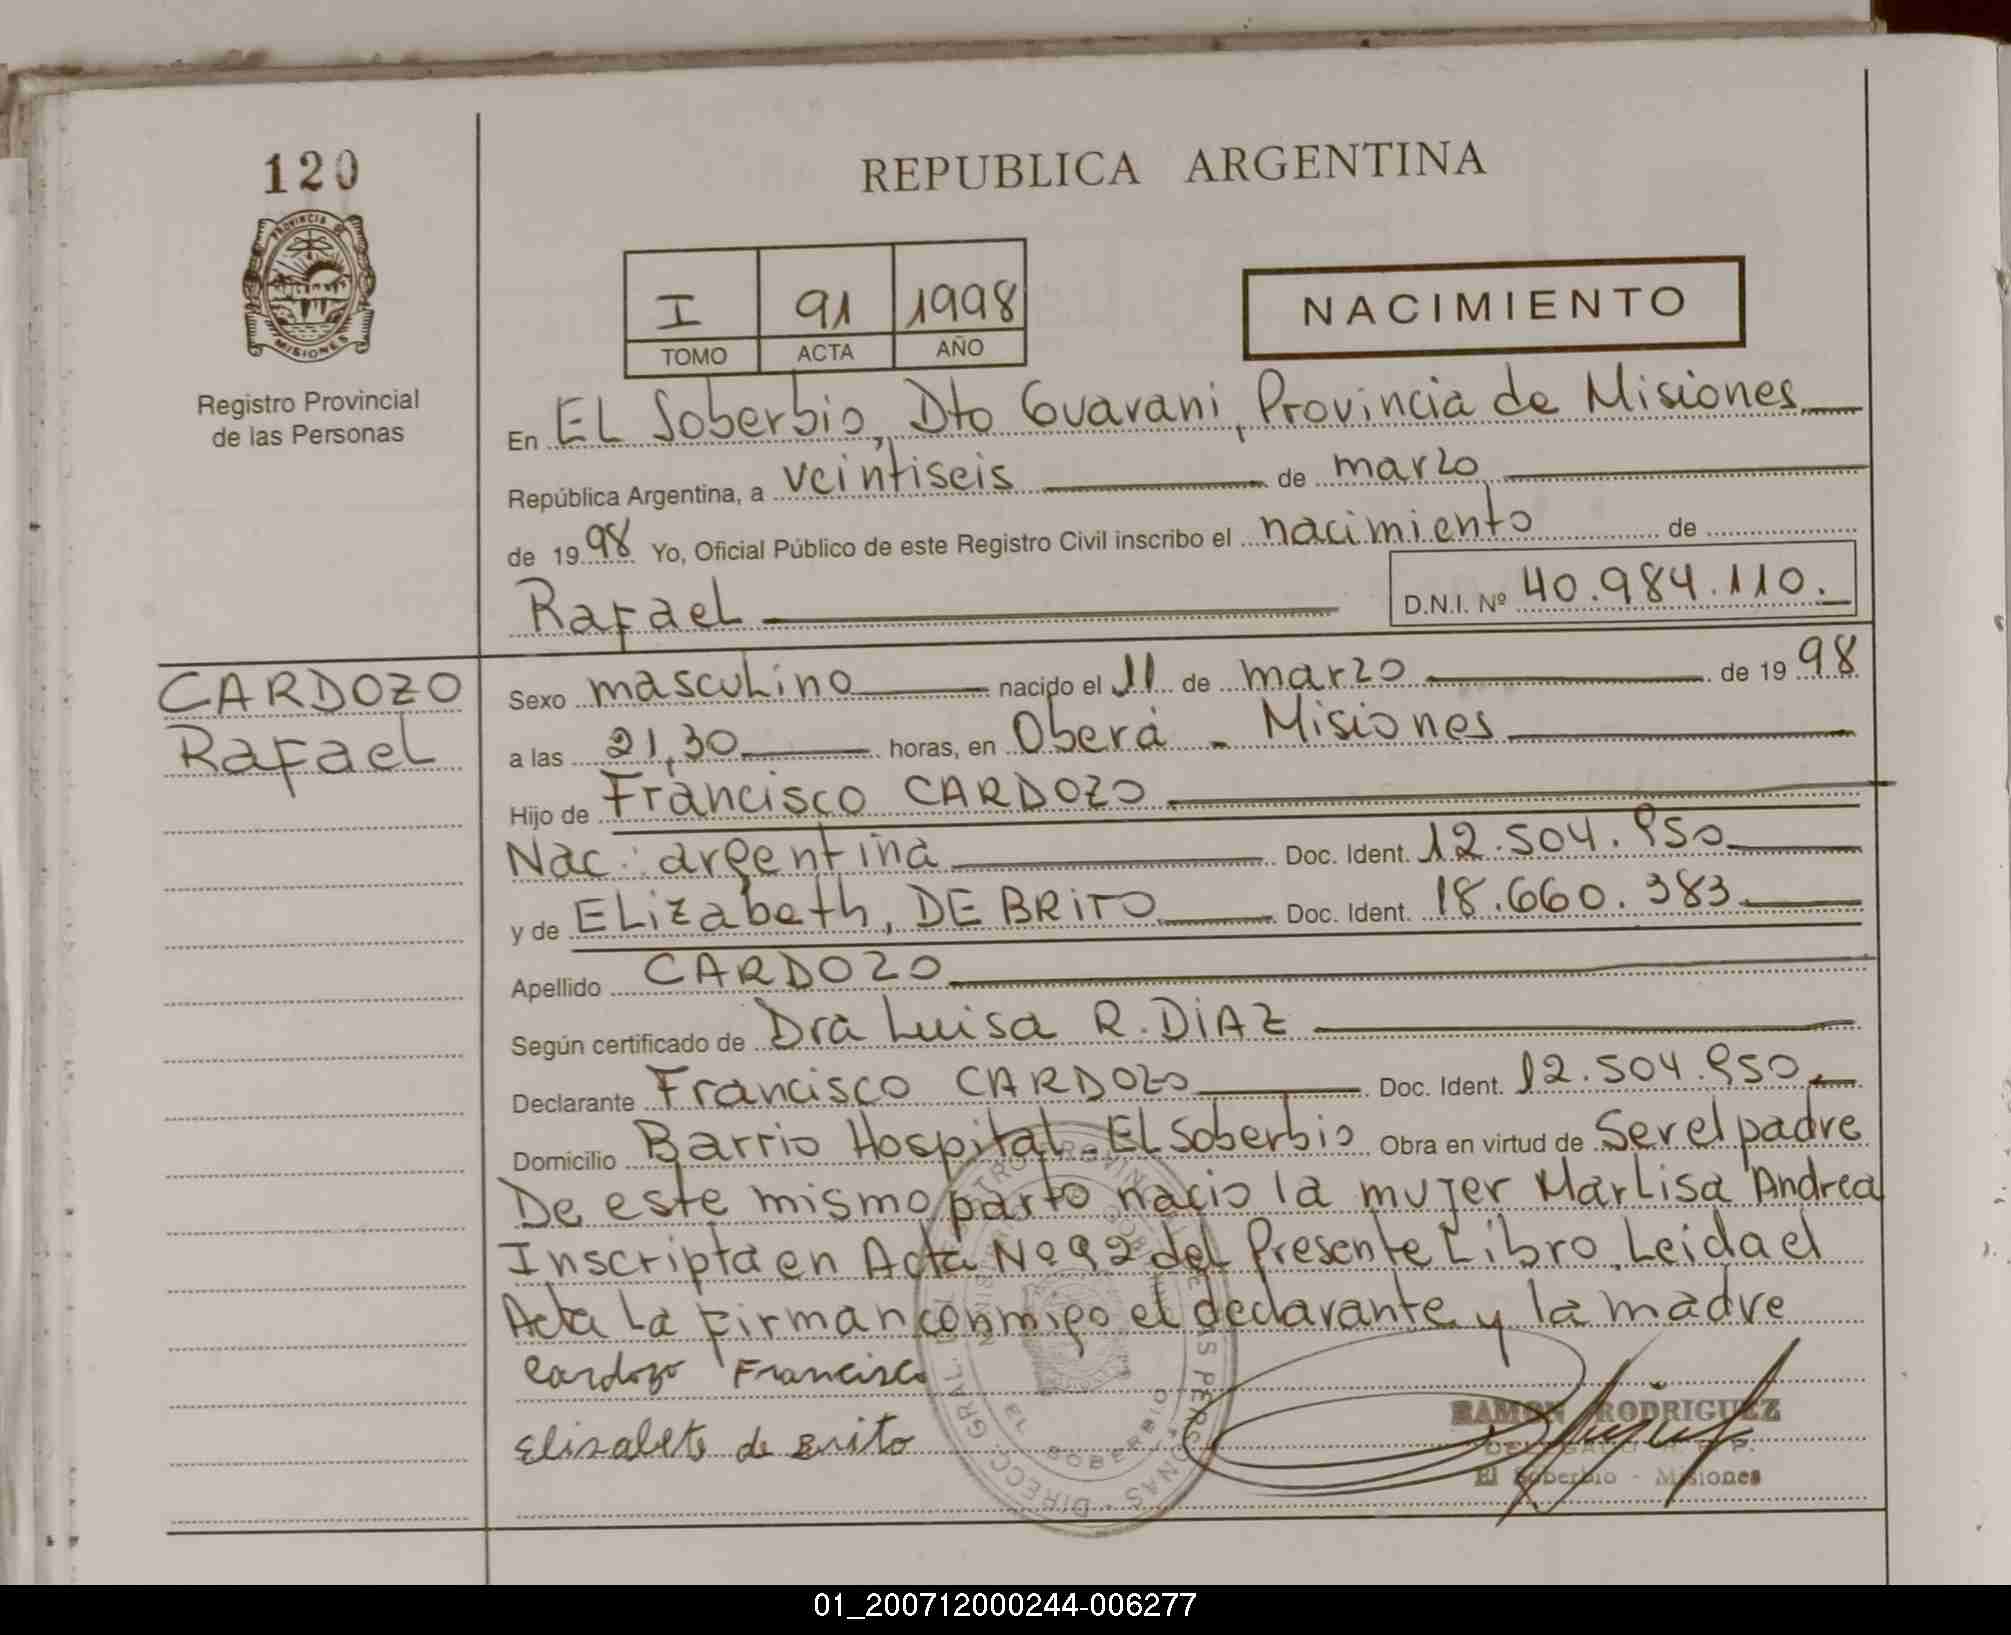 120
PROVINCIA DE
MISIONES
Registro Provincial
de las Personas
REPUBLICA ARGENTINA
I 91 1998
TOMO ACTA AÑO
NACIMIENTO
En EL Soberbio, Dto Guarani, Provincia de Misiones
República Argentina, a veintiseis de marzo
de 1998 Yo, Oficial Público de este Registro Civil inscribo el nacimiento de
Rafael D.N.I. Nº 40.984.110.
CARDOZO
Rafael
Sexo masculino nacido el 11 de marzo de 1998
a las 21,30 horas, en Oberá - Misiones
Hijo de Francisco CARDOZO
Nac: argentina Doc. Ident. 12.504.950
y de ELizabeth, DE BRITO Doc. Ident. 18.660.383
Apellido CARDOZO
Según certificado de Dra Luisa R. DIAZ
Declarante Francisco CARDOZO Doc. Ident. 12.504.950
Domicilio Barrio Hospital - El Soberbio Obra en virtud de Ser el padre
De este mismo parto nacio la mujer MarLisa Andrea
Inscripta en Acta Nº 92 del Presente Libro. Leida el
Acta La firman conmigo el declarante y la madre
Cardozo Francisco
Elisabete de Brito
RAMON RODRIGUEZ
El Soberbio - Misiones
EL SOBERBIO
01_200712000244-006277